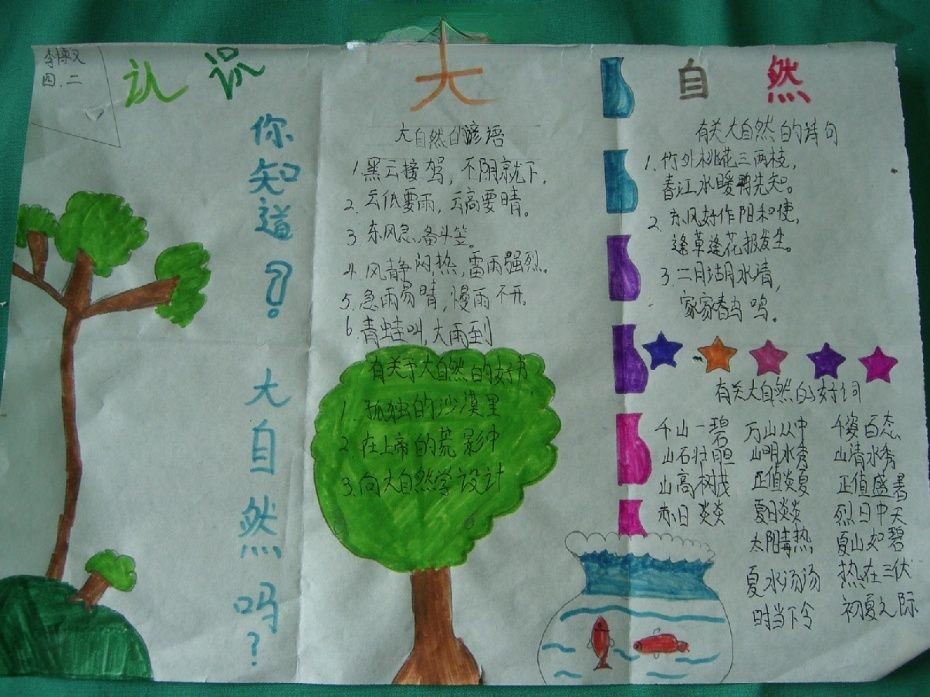 李博文
四.二
认识大自然
你知道?大自然吗?
大自然的谚语
1.黑云接驾,不阴就下.
2.云低要雨,云高要晴。
3.东风急,备斗笠。
4.风静闷热,雷雨强烈.
5.急雨易晴,漫雨不开.
6.青蛙叫,大雨到
有关于大自然的好书
1.孤独的沙漠里
2.在上帝的荒影中
3.向大自然学设计
有关大自然的诗句
1.竹外桃花三两枝,
春江水暖鸭先知。
2.东风好作阳和使,
逢草逢花报发生。
3.二月湖水清,
家家春鸟鸣。
有关大自然的好词
千山一碧 万山丛中 千姿百态
山石壮胆 山明水秀 山清水秀
山高树茂 正值炎夏 正值盛暑
赤日炎炎 夏日炎炎 烈日中天
太阳毒热 夏山如碧
夏水汤汤 热在三伏
时当下令 初夏之际